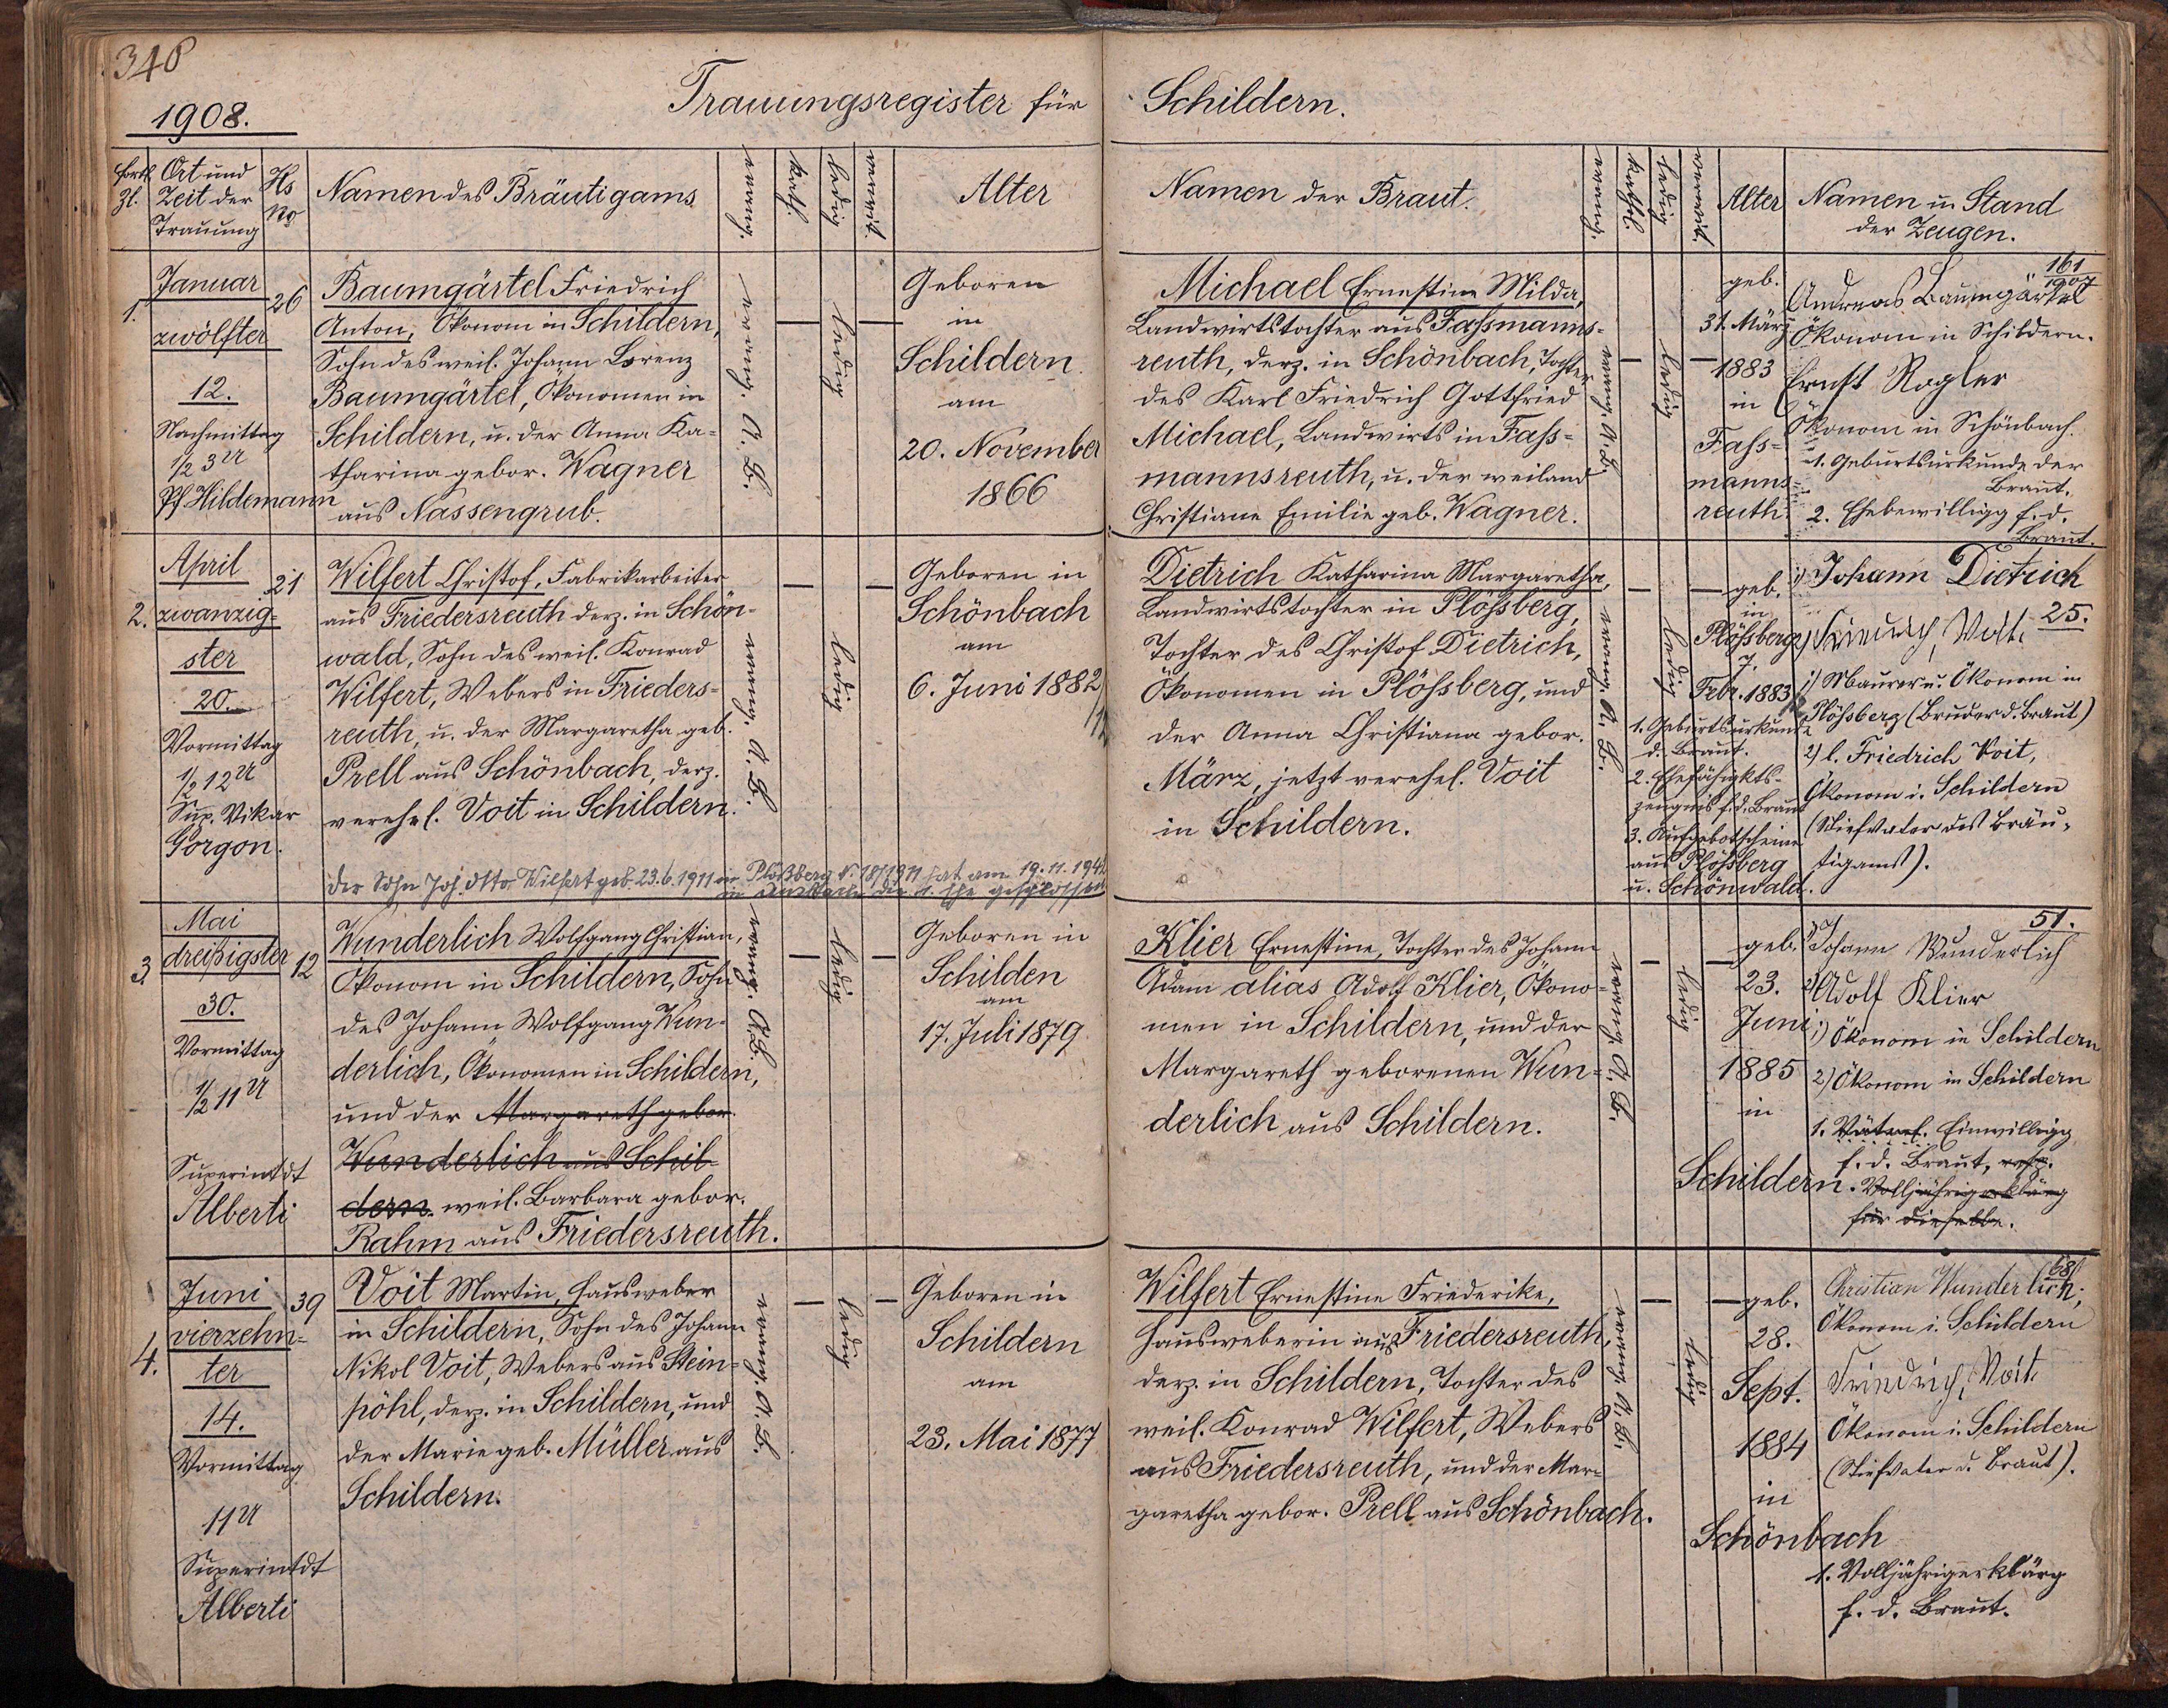 348
1908.
Trauungsregister für Schildern.
fortl. Zl.
Ort und Zeit der Trauung
Hs No
Namen des Bräutigams
evang.
kathl.
ledig
verwit.
Alter
Namen der Braut.
evang.
kathl.
ledig
verwit.
Alter
Namen u. Stand der Zeugen.
1.
Januar
zwölfter
12.
Nachmittag
1/2 3 U
Pf Hildemann
26
Baumgärtel Friedrich
Anton, Ökonom in Schildern,
Sohn des weil. Johann Lorenz
Baumgärtel, Ökonomen in
Schildern, u. der Anna Ka-
tharina gebor. Wagner
aus Nassengrub.
evang. A. B.
—
ledig
—
Geboren
in
Schildern
am
20. November
1866
Michael Ernestine Milda,
Landwirtstochter aus Faßmanns-
reuth, derz. in Schönbach, Tochter
des Karl Friedrich Gottfried
Michael, Landwirts in Faß-
mannsreuth, u. der weiland
Christiane Emilie geb. Wagner.
evang. A. B.
—
ledig
—
geb.
31. März
1883
in
Faß-
manns-
reuth.
161
1907
Andreas Baumgärtel
Ökonom in Schildern.
Ernst Rogler
Ökonom in Schönbach.
1. Geburtsurkunde der
Braut.
2. Ehebewilligg f. d.
Braut.
2.
April
zwanzig-
ster
20.
Vormittag
1/2 12 U
Sup. Vikar
Gorgon.
21
Wilfert Christof, Fabrikarbeiter
aus Friedersreuth derz. in Schön-
wald, Sohn des weil. Konrad
Wilfert, Webers in Frieders-
reuth, u. der Margaretha geb.
Prell aus Schönbach, derz.
verehel. Voit in Schildern.
Der Sohn Joh. Otto Wilfert geb. 23.6.1911 in Plößberg N. 18/1911 hat am 19.11.194
in die 1. Ehe geschlossen
evang. A. B.
—
ledig
Geboren in
Schönbach
am
6. Juni 1882
Dietrich Katharina Margaretha,
Landwirtstochter in Plößberg,
Tochter des Christof Dietrich,
Ökonomen in Plößberg, und
der Anna Christiana gebor.
März, jetzt verehel. Voit
in Schildern.
evang. A. B.
—
ledig
—
geb.
in
Plößberg
7.
Febr. 1883
1. Geburtsurkunde
d. Braut.
2. Ehefähigkts-
zeugnis f. d. Braut
3. Aufgebotscheine
aus Plößberg
u. Schönwald.
1) Johann Dietrich
25.
2) Friedrich Voit.
1) Maurer u. Ökonom in
Plößberg (Bruder d. Braut)
2) l. Friedrich Voit,
Ökonom i. Schildern
(Stiefvater des Bräu-
tigams).
3.
Mai
dreißigster
30.
Vormittag
1/2 11 U
Superintdt
Alberti
12
Wunderlich Wolfgang Christian,
Ökonom in Schildern, Sohn
des Johann Wolfgang Wun-
derlich, Ökonomen in Schildern,
und der Margareth gebor.
Wunderlich aus Schil-
dern. weil. Barbara gebor.
Rahm aus Friedersreuth.
evang. A. B.
—
ledig
—
Geboren in
Schilden
am
17. Juli 1879
Klier Ernestine, Tochter des Johann
Adam alias Adolf Klier, Ökono-
men in Schildern, und der
Margareth geborenen Wun-
derlich aus Schildern.
evang. A. B.
—
ledig
—
geb.
23.
Juni
1885
in
Schildern.
51.
1) Johann Wunderlich
2) Adolf Klier
1) Ökonom in Schildern
2) Ökonom in Schildern
1. Väterl. Einwilligg
f. d. Braut, resp.
Volljährigerklärg
für dieselbe.
4.
Juni
vierzehn-
ter
14.
Vormittag
11 U
Superintdt
Alberti
39
Voit Martin, Hausweber
in Schildern, Sohn des Johann
Nikol Voit, Webers aus Stein-
pöhl, derz. in Schildern, und
der Marie geb. Müller aus
Schildern.
evang. A. B.
—
ledig
—
Geboren in
Schildern
am
23. Mai 1877
Wilfert Ernestine Friederike,
Hausweberin aus Friedersreuth,
derz. in Schildern, Tochter des
weil. Konrad Wilfert, Webers
aus Friedersreuth, und der Mar-
garetha gebor. Prell aus Schönbach.
evang. A. B.
—
ledig
—
geb.
28.
Sept.
1884
in
Schönbach
68
Christian Wunderlich,
Ökonom i. Schildern
Friedrich Voit
Ökonom i. Schildern
(Stiefvater d. Braut).
1. Volljährigerklärg
f. d. Braut.